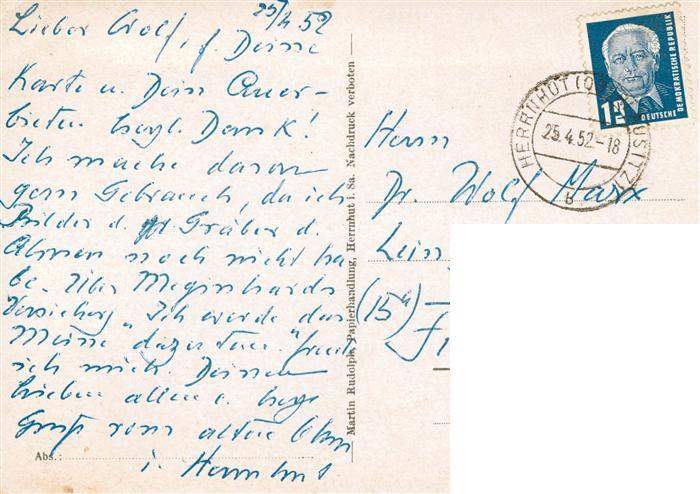 25/4 52
Lieber Wolf, f. Deine
Karte u. Dein Aner-
bieten herzl. Dank!
Ich mache davon
gern Gebrauch, da ich
Bilder d. Gräber d.
Ahnen noch nicht ha
be. Über Meginhards
Versicherg „Ich werde das
Meine dazu tun." freut
ich mich. Deinen
Lieben allen u. herzl
Gruß vom alten Ohm
i. Herrnhut
Abs.:
Martin Rudolph, Papierhandlung, Herrnhut i. Sa. Nachdruck verboten
HERRNHUT (OBERLAUSITZ)
25.4.52.-18
b
12
DEUTSCHE
DEMOKRATISCHE REPUBLIK
Herrn
Dr. Wolf Marx
(15a)